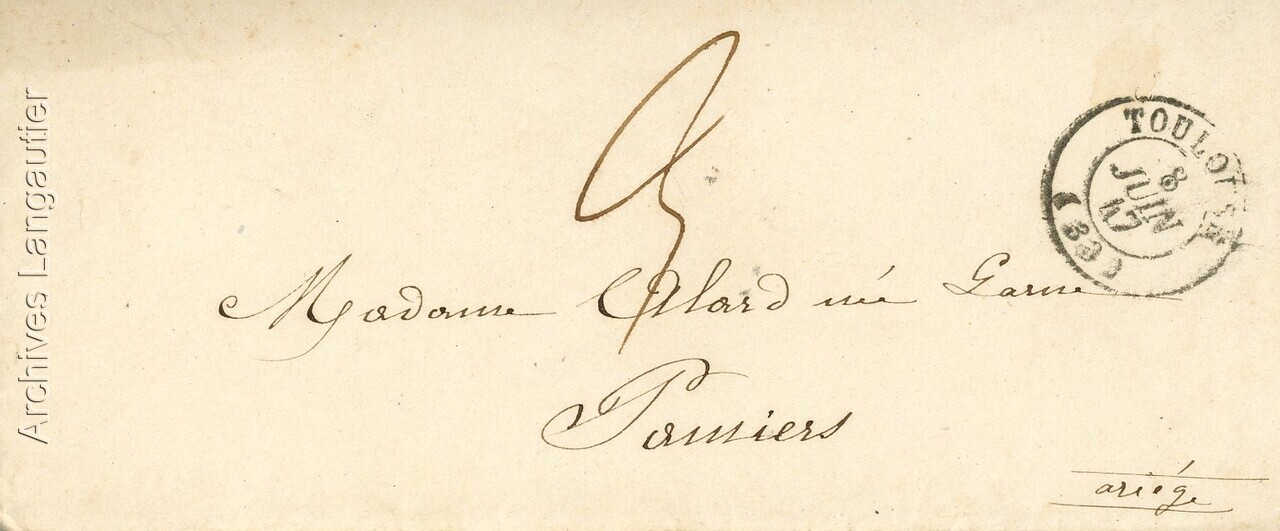 Archives Langautier
3
TOULOUSE
8
JUIN
47
(30)
Madame Alard née Garne
Pamiers
ariége